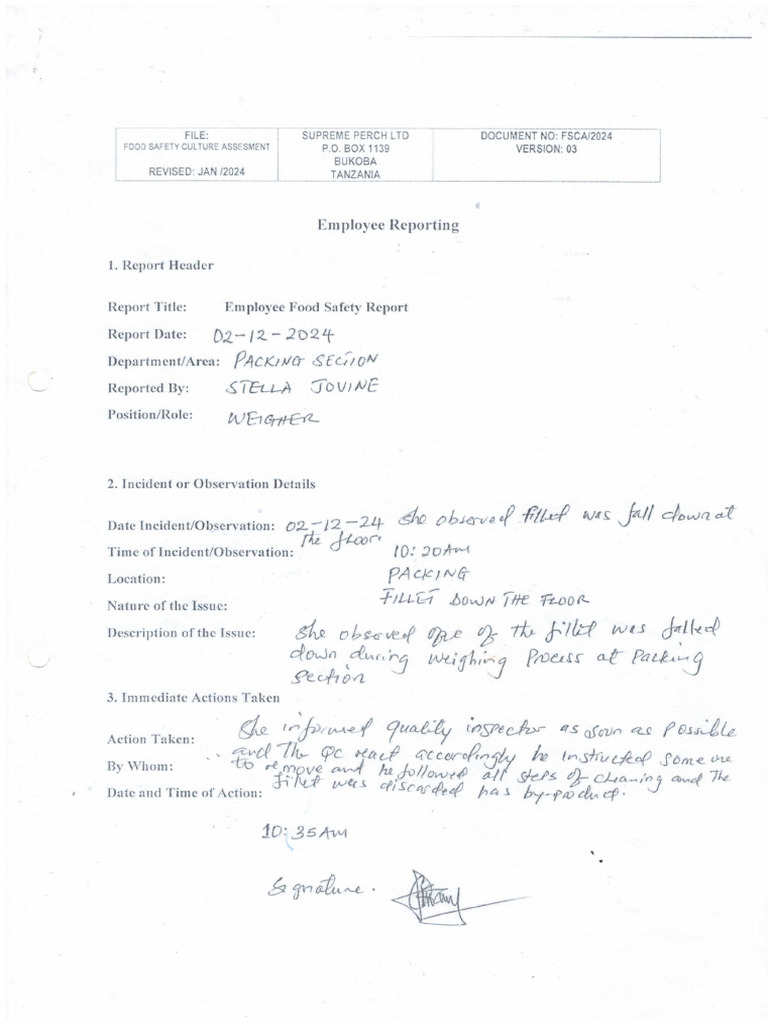 FILE:
FOOD SAFETY CULTURE ASSESMENT
REVISED: JAN /2024
SUPREME PERCH LTD
P.O. BOX 1139
BUKOBA
TANZANIA
DOCUMENT NO: FSCA/2024
VERSION: 03
Employee Reporting
1. Report Header
Report Title: Employee Food Safety Report
Report Date: 02-12-2024
Department/Area: PACKING SECTION
Reported By: STELLA JOVINE
Position/Role: WEIGHER
2. Incident or Observation Details
Date Incident/Observation: 02-12-24 She observed fillet was fall down at
the floor
Time of Incident/Observation: 10:20AM
Location: PACKING
Nature of the Issue: FILLET DOWN THE FLOOR
Description of the Issue: She observed one of the fillet was falled
down during weighing Process at Packing
section
3. Immediate Actions Taken
Action Taken: She informed quality inspector as soon as possible
By Whom: and the QC react accordingly he instructed some one
to remove and he followed all steps of cleaning and the
Date and Time of Action: fillet was discarded has by-product.
10:35AM
Signature.